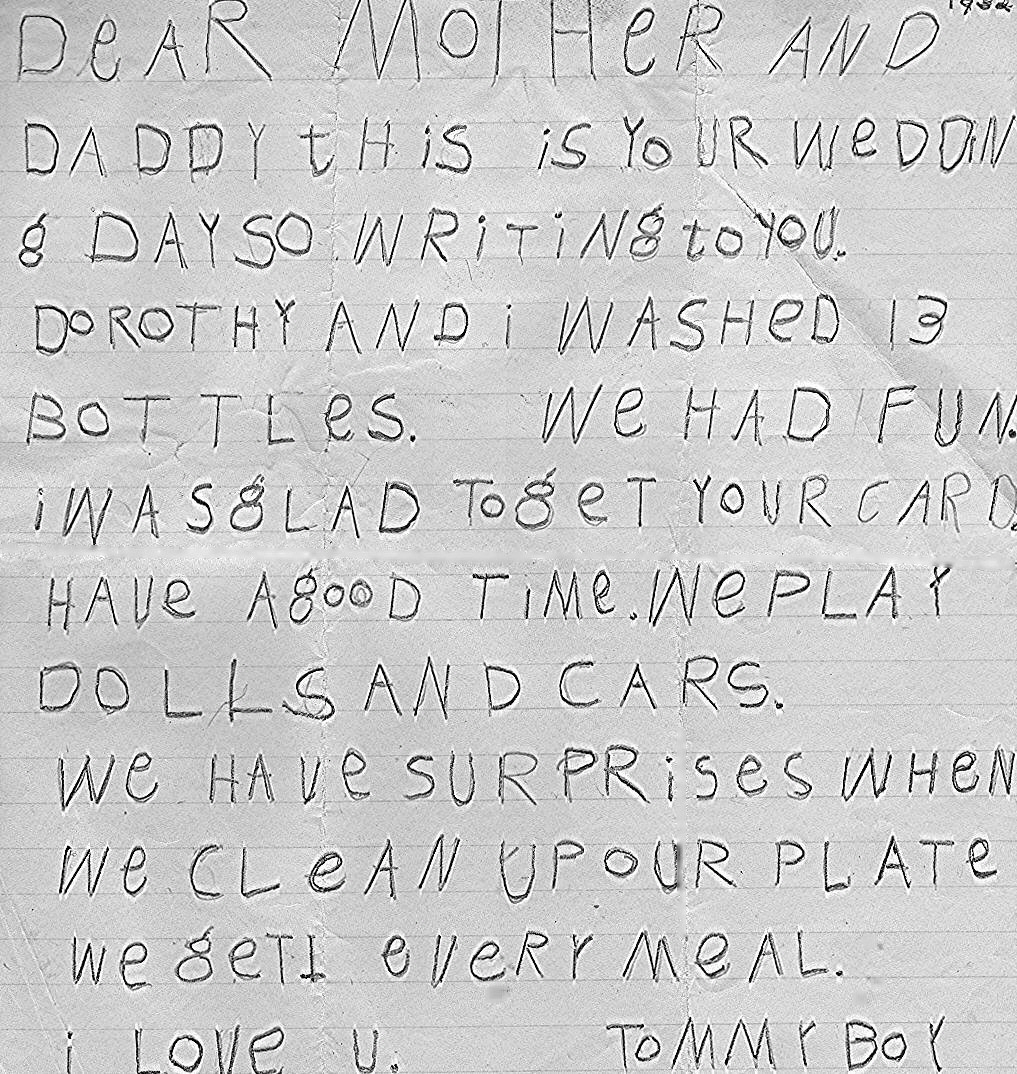 1932
DeAR MOTHeR AND
DADDY tHiS iS YoUR WeDDiN
g DAY SO WRiTiNg to YOU.
DoROTHY AND i WASHeD 13
BOTTLeS. We HAD FUN.
i WAS gLAD To geT YOUR CARD.
HAVe A gooD TiMe. We PLAY
DOLLS AND CARS.
We HAVe SURPRiSeS WHeN
We CLeAN UP OUR PLATe
We geT 1 eVeRY MeAL.
i LOVe U. ToMMY BOY